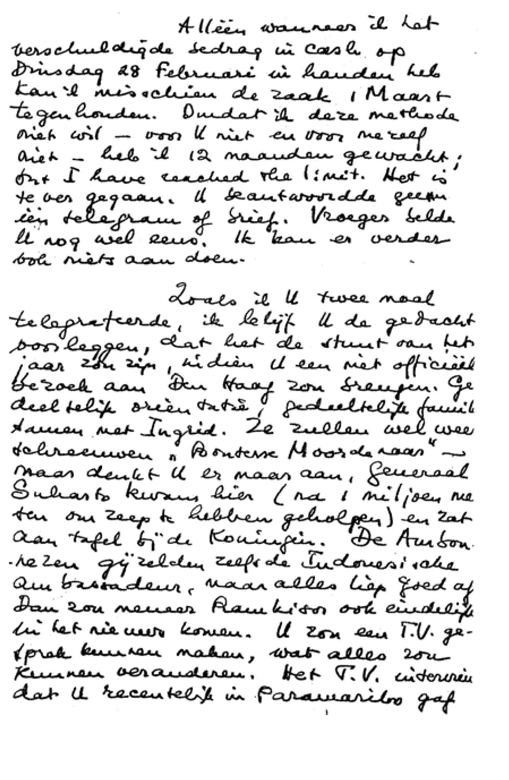 Alléén wanneer ik het
verschuldigde bedrag in cash op
Dinsdag 28 Februari in handen heb
kan ik misschien de zaak 1 Maart
tegenhouden. Omdat ik deze methode
niet wil – voor U niet en voor mezelf
niet – heb ik 12 maanden gewacht,
but I have reached the limit. Het is
te ver gegaan. U beantwoordde geen
één telegram of brief. Vroeger belde
U nog wel eens. Ik kan er verder
ook niets aan doen.
Zoals ik U twee maal
telegrafeerde, ik blijf U de gedacht
voorleggen, dat het de stunt van het
jaar zou zijn, indien U een niet officieël
bezoek aan Den Haag zou brengen. Ge
deeltelijk oriëntatie, gedeeltelijk
samen met Ingrid. Ze zullen wel wee
schreeuwen "Bouterse Moordenaar" –
maar denkt U er maar aan, Generaal
Suharto kwam hier (na 1 miljoen me
sen om zeep te hebben geholpen) en zat
aan tafel bij de Koningin. De Ambon
nezen gijzelden zelfs de Indonesische
ambassadeur, maar alles liep goed af
Dan zou meneer Ramkisor ook eindelijk
in het nieuws komen. U zou een T.V. ge-
sprek kunnen maken, wat alles zou
kunnen veranderen. Het T.V. interview
dat U recentelijk in Paramaribo gaf